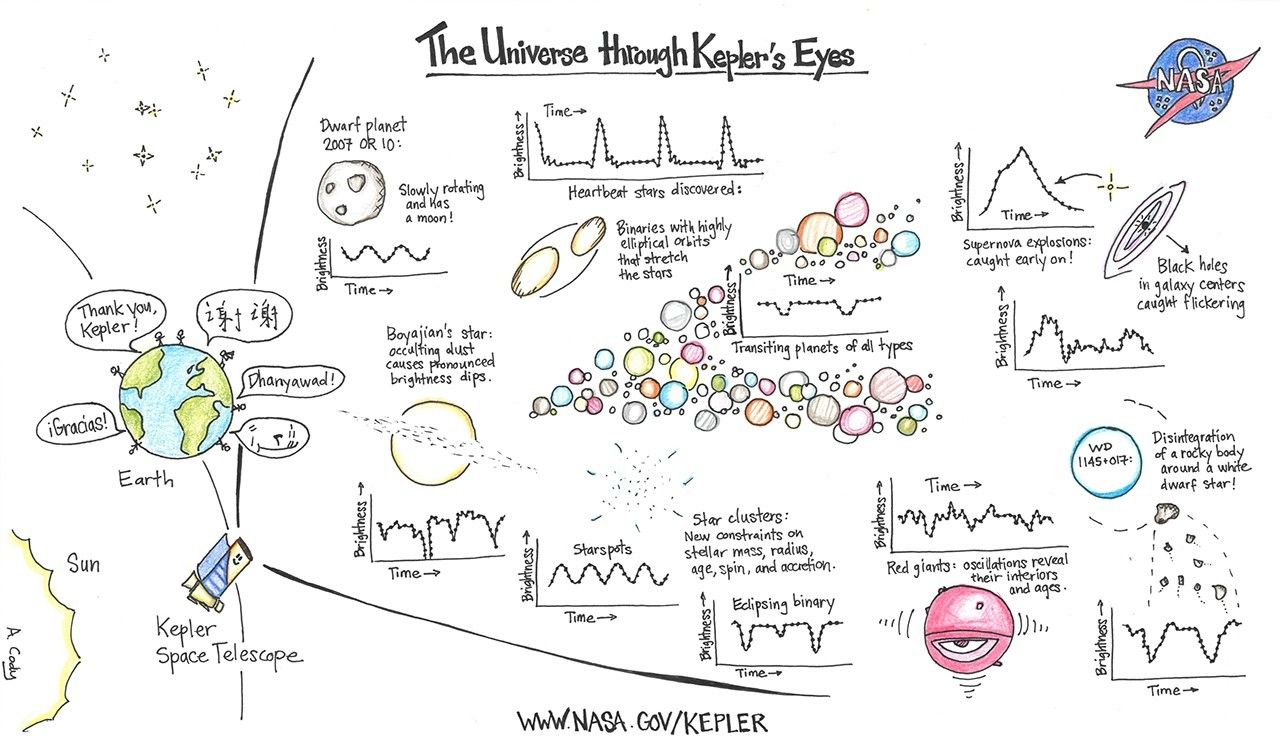 The Universe through Kepler's Eyes
NASA
Dwarf planet
2007 OR 10:
Slowly rotating
and has
a moon!
Brightness →
Time →
Brightness →
Time →
Heartbeat stars discovered:
Binaries with highly
elliptical orbits
that stretch
the stars
Brightness →
Time →
Transiting planets of all types
Brightness →
Time →
Supernova explosions:
caught early on!
Black holes
in galaxy centers
caught flickering
Brightness →
Time →
Thank you,
Kepler!
谢谢
Dhanyawad!
¡Gracias!
Earth
Boyajian's star:
occulting dust
causes pronounced
brightness dips.
Brightness →
Time →
Sun
Kepler
Space Telescope
A Cody
Brightness →
Starspots
Time →
Star clusters:
New constraints on
stellar mass, radius,
age, spin, and accretion.
Brightness →
Eclipsing binary
Time →
Brightness →
Time →
Red giants: oscillations reveal
their interiors
and ages.
WD
1145+017:
Disintegration
of a rocky body
around a white
dwarf star!
Brightness →
Time →
WWW.NASA.GOV/KEPLER